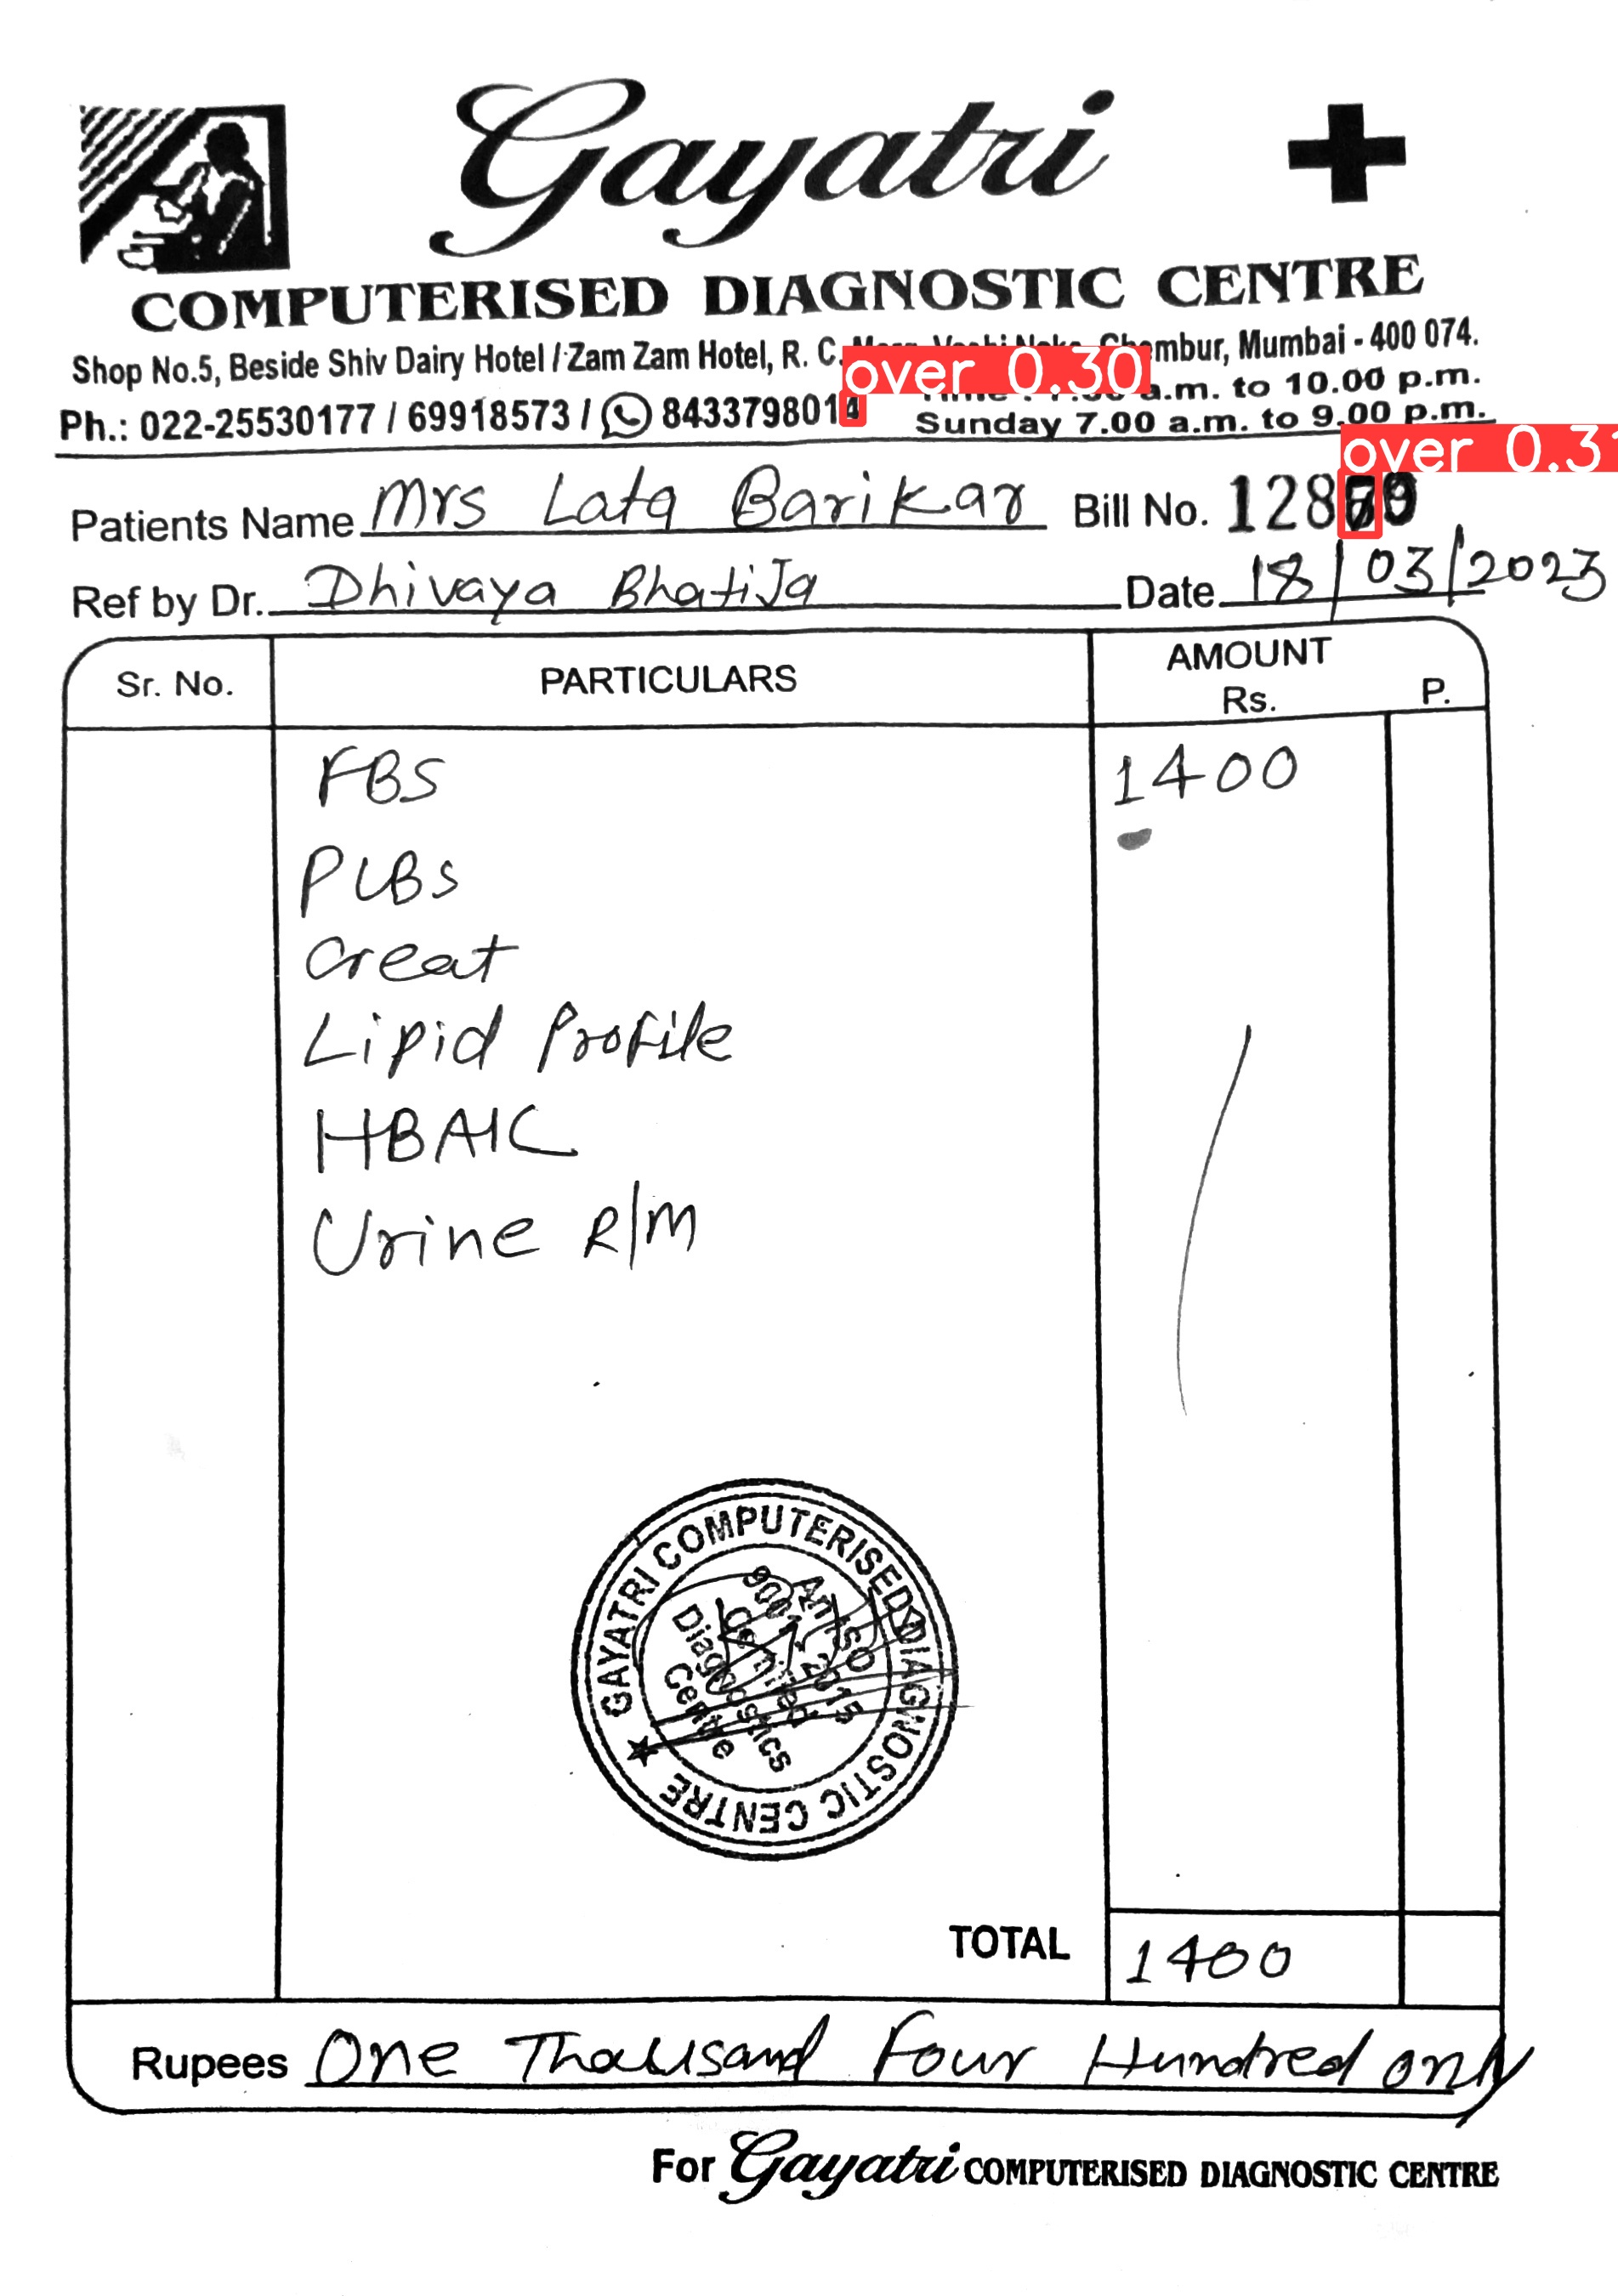 Gayatri
COMPUTERISED DIAGNOSTIC CENTRE
Shop No.5, Beside Shiv Dairy Hotel / Zam Zam Hotel, R. C. Chembur, Mumbai - 400 074.
over 0.30
a.m. to 10.00 p.m.
Ph.: 022-25530177 / 69918573 / 843379801
Sunday 7.00 a.m. to 9.00 p.m.
over 0.3
Patients Name Mrs Lata Barikar Bill No.
Ref by Dr. Dhivaya Bhatija Date 18/03/2023
Sr. No. PARTICULARS AMOUNT
Rs. P.
FBS 1400
PLBS
Creat
Lipid Profile
HBA1C
Urine R/M
GAYATRI COMPUTERISED DIAGNOSTIC CENTRE
An ISO
Diagnostics
Centre
TOTAL 1400
Rupees One Thousand Four Hundred only
For Gayatri COMPUTERISED DIAGNOSTIC CENTRE